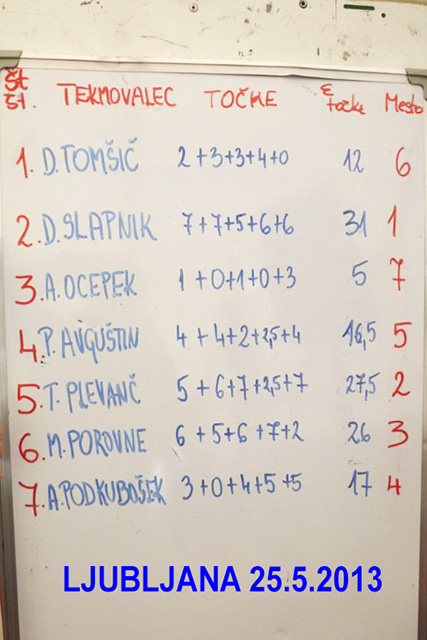 št
št. TEKMOVALEC TOČKE Σ točke Mesto
1. D. TOMŠIČ 2+3+3+4+0 12 6
2. D. SLAPNIK 7+7+5+6+6 31 1
3. A. OCEPEK 1+0+1+0+3 5 7
4. P. AVGUŠTIN 4+4+2+2,5+4 16,5 5
5. T. PLEVANČ 5+6+7+2,5+7 27,5 2
6. M. POROVNE 6+5+6+7+2 26 3
7. A. PODKUBOŠEK 3+0+4+5+5 17 4
LJUBLJANA 25.5.2013